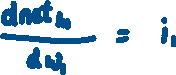 dnet_{h_1} / dw_1 = i_1